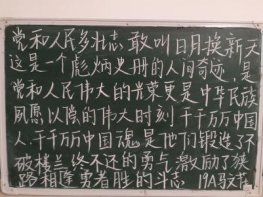 党和人民多壮志敢叫日月换新天
这是一个彪炳史册的人间奇迹,是
党和人民伟大的光荣更是中华民族
夙愿以偿的伟大时刻千千万万中国
人,千千万万中国魂是他们锻造了不
破楼兰终不还的勇与激励了狭
路相逢勇者胜的斗志 19A马文